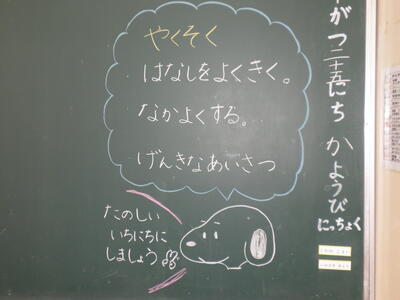 がつ二十五にち かようび
にっちょく
やくそく
はなしをよくきく。
なかよくする。
げんきなあいさつ
たのしい
いちにちに
しましょう